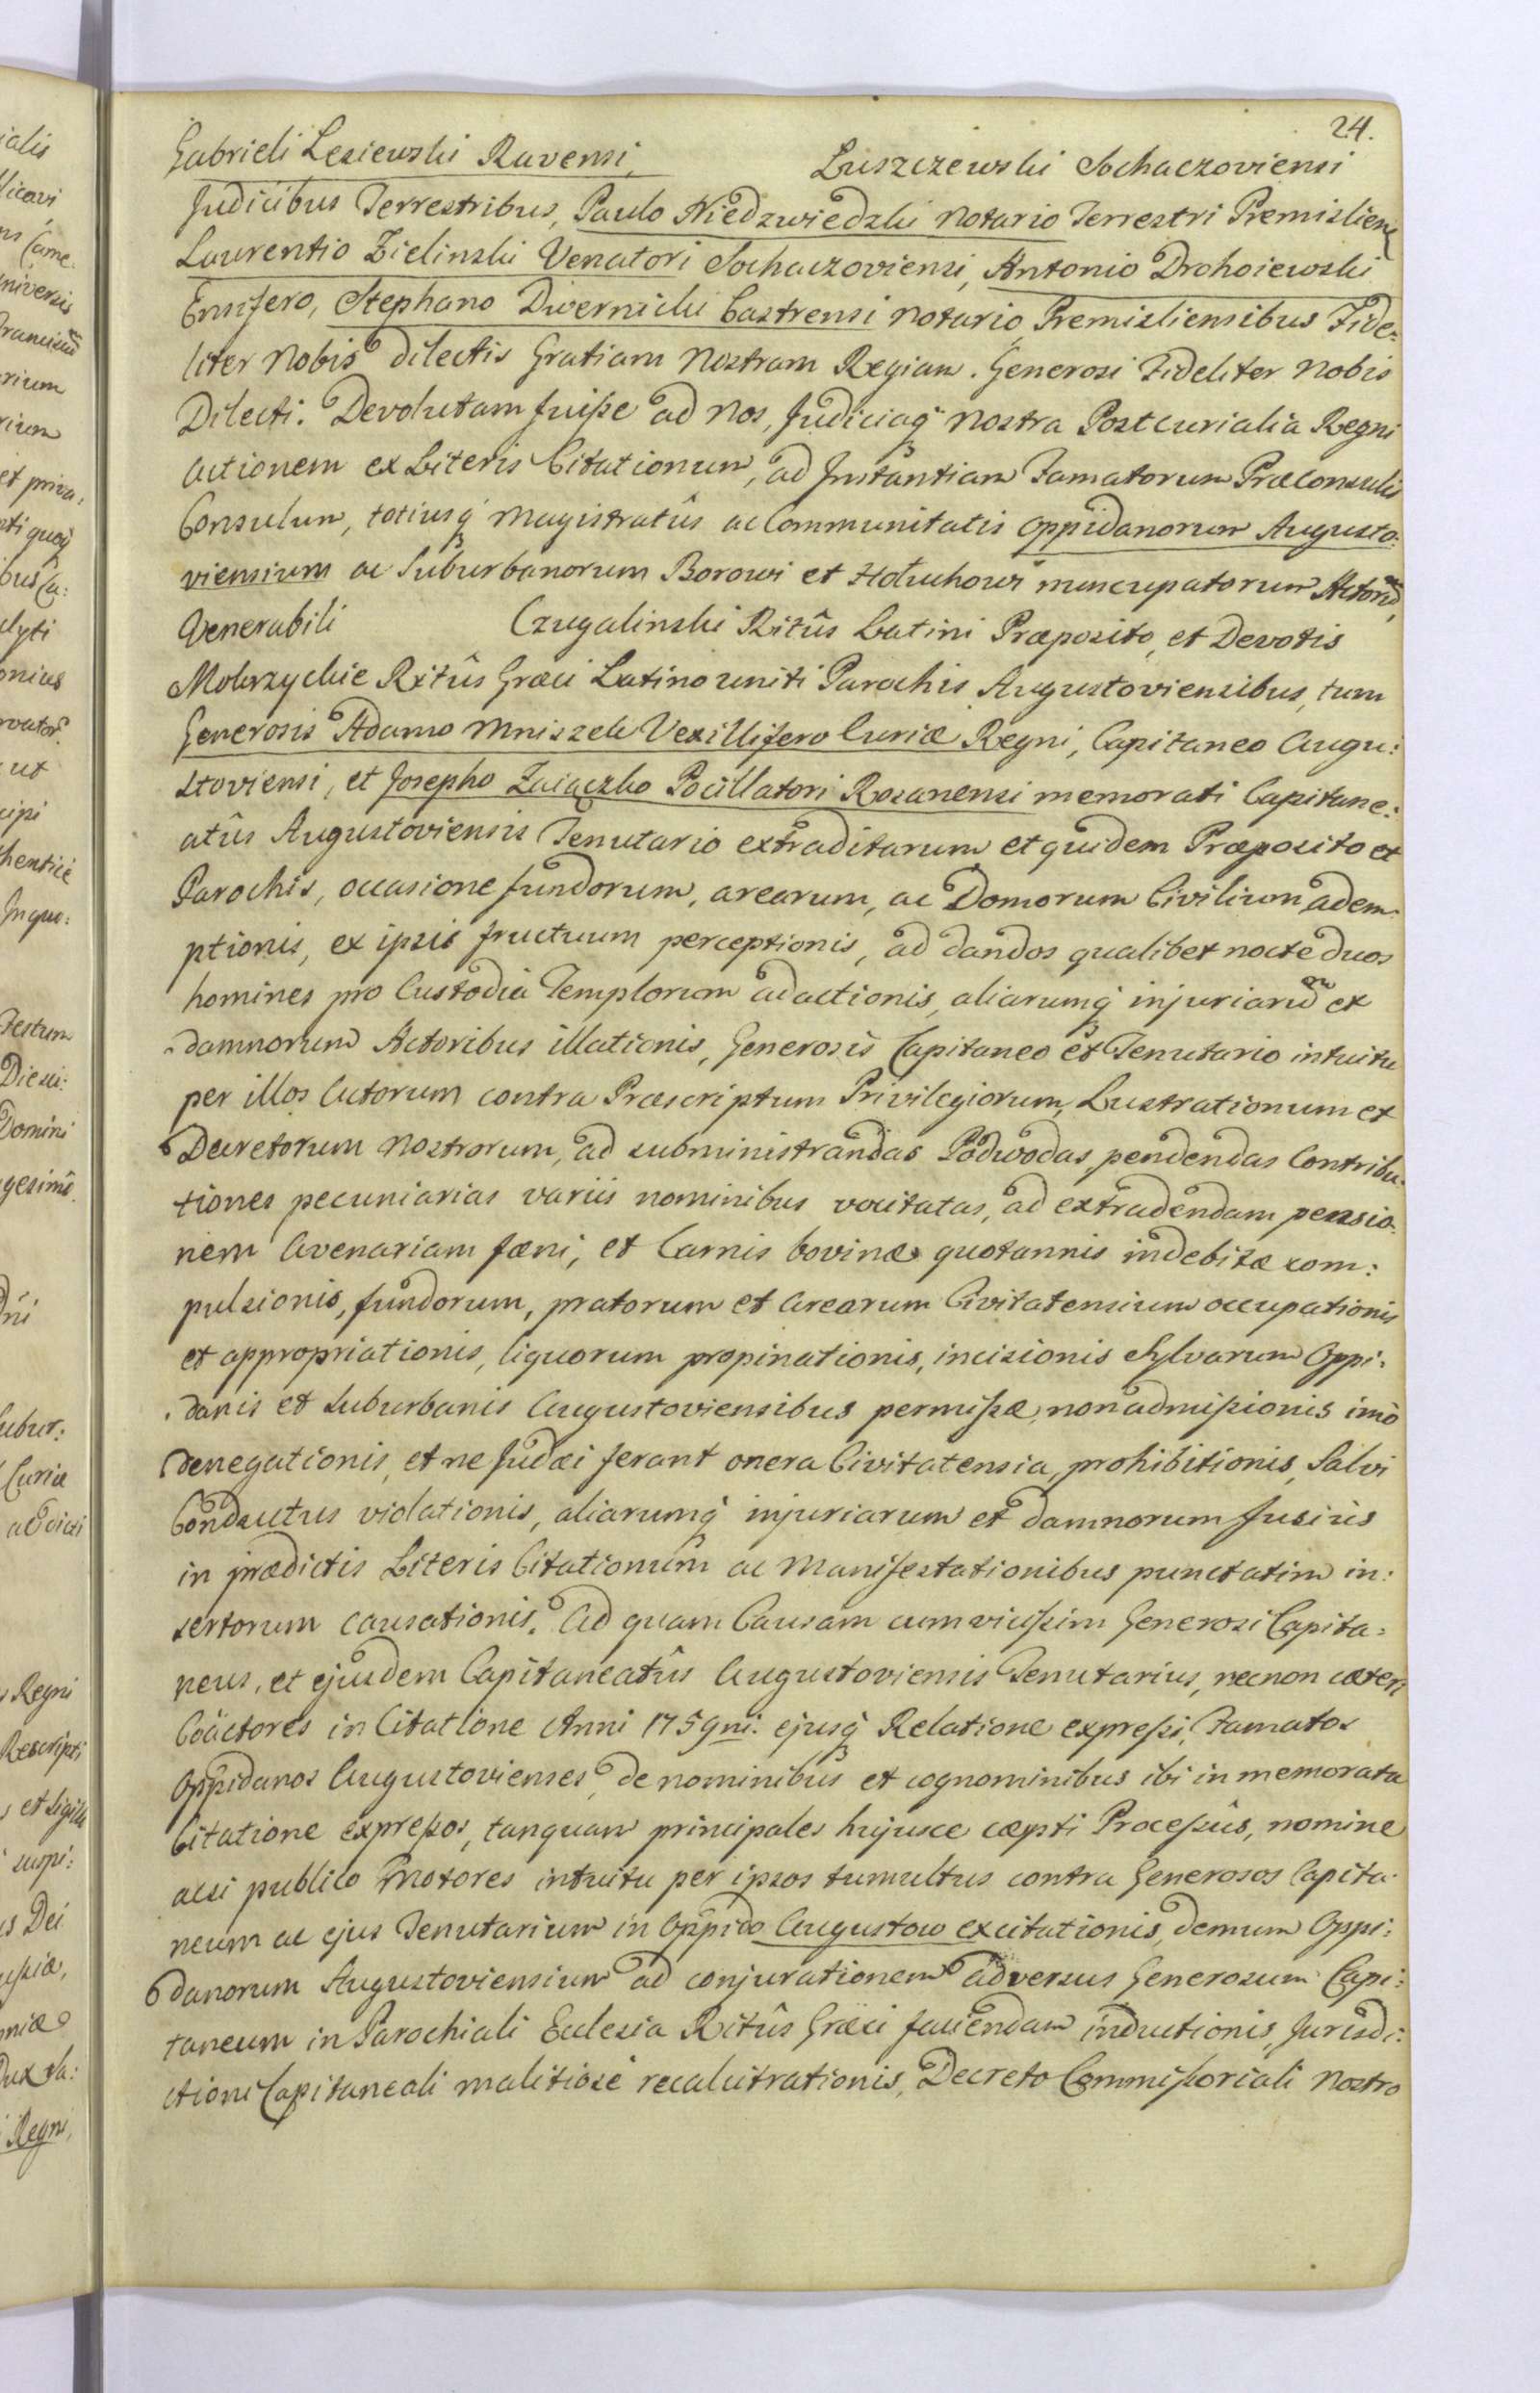 24.
Gabrieli Lesiewski Ravensi, Luszczewski Sochaczoviensi
Judicibus Terrestribus, Paulo Niedzwiedzki Notario Terrestri Premislien
Laurentio Zielinski Venatori Sochaczoviensi, Antonio Drohoiewski
Ensifero, Stephano Dwernicki Castrensi Notario Premisliensibus Fide:
liter Nobis dilectis Gratiam Nostram Regiam. Generosi Fideliter Nobis
Dilecti. Devolutam fuiße ad Nos, Judiciaq́ Nostra Postcurialia Regni
Actionem ex Literis Citationum, ad Instantiam Famatorum Præconsulis
Consulum, totiusq́ Magistratûs ac Communitatis Oppidanorum Augusto:
viensium ac Suburbanorum Borowi et Hołuchowi nuncupatorum Actorũ,
Venerabili Czugalinski Ritûs Latini Præposito, et Devotis
Mokrzyckie Ritûs Græci Latino uniti Parochis Augustoviensibus, tum
Generosis Adamo Mniszek Vexillifero Curiæ Regni, Capitaneo Augu:
stoviensi, et Josepho Zaiączko Pocillatori Rosanensi memorati Capitane:
atûs Augustoviensis Tenutario extraditarum et quidem Præposito et
Parochis, occasione fundorum, arearum, ac Domorum Civilium adem
ptionis, ex ipsis fructuum perceptionis, ad dandos qualibet nocte duos
homines pro Custodia Templorum adactionis, aliarumq́ injuriarũ et
damnorum Actoribus illationis, Generosis Capitaneo et Tenutario intuitu
per illos Actorum contra Præscriptum Privilegiorum, Lustrationum et
Decretorum Nostrorum, ad subministrandas Podwodas, pendendas Contribu:
tiones pecuniarias variis nominibus vocitatas, ad extradendam pensio:
nem Avenariam fæni, et Carnis bovinæ quotannis indebitæ com:
pulsionis, fundorum, pratorum et Arearum Civitatensium occupationis
et appropriationis, liquorum propinationis, incisionis Sylvarum Oppi:
danis et suburbanis Augustoviensibus permißæ, non admißionis imò
denegationis, et ne Judæi ferant onera Civitatensia, prohibitionis, Salvi
Conductus violationis, aliarumq́ injuriarum et damnorum fusiùs
in prædictis Literis Citationum ac Manifestationibus punctatim in:
sertorum causationis. Ad quam Causam cum vicißim Generosi Capita:
neus, et ejusdem Capitaneatûs Augustoviensis Tenutarius, necnon cæteri
Coäctores in Citatione Anni 1759ni. ejusq́ Relatione expreßi, Famatos
Oppidanos Augustovienses, de nominibus et cognominibus ibi in memorata
Citatione expreßos, tanquam principales hujusce cæpti Proceßûs, nomine
acsi publico Motores intuitu per ipsos tumultus contra Generosos Capita:
neum ac ejus Tenutarium in Oppido Augustow excitationis, demum Oppi:
danorum Augustoviensium ad conjurationem adversus Generosum Capi:
taneum in Parochiali Ecclesia Ritûs Græci faciendam inductionis, Jurisdi:
ctioni Capitaneali malitiosè recalcitrationis, Decreto Commißoriali Nostro